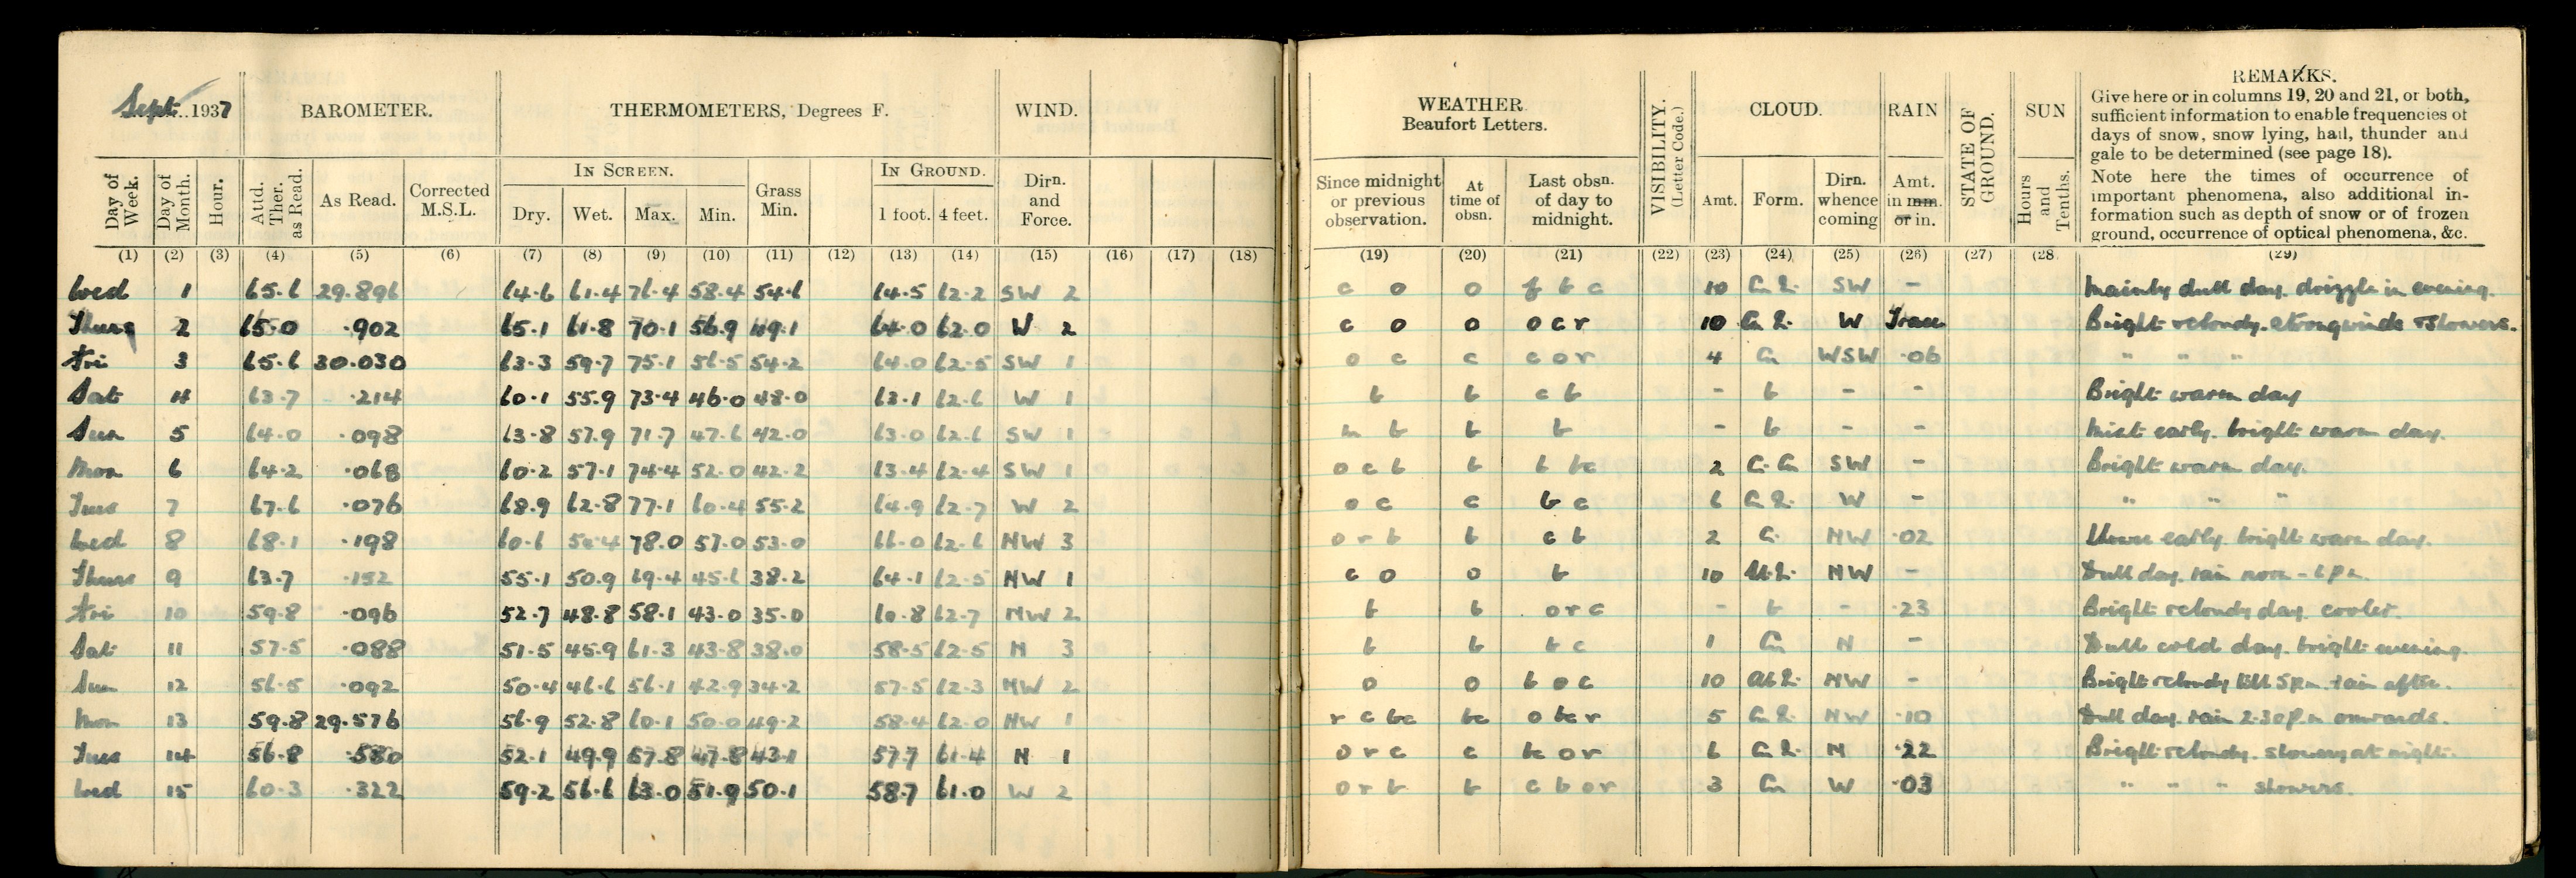 Sept. 1937 BAROMETER. THERMOMETERS, Degrees F. WIND.
Day of Week. Day of Month. Hour. Attd. Ther. as Read. As Read. Corrected M.S.L. IN SCREEN. Dry. Wet. Max. Min. Grass Min. IN GROUND. 1 foot. 4 feet. Dirn. and Force.
(1) (2) (3) (4) (5) (6) (7) (8) (9) (10) (11) (12) (13) (14) (15) (16) (17) (18)
Wed 1 65.6 29.896 64.6 61.4 76.4 58.4 54.6 64.5 62.2 SW 2
Thurs 2 65.0 .902 65.1 61.8 70.1 56.9 49.1 64.0 62.0 W 2
Fri 3 65.6 30.030 63.3 59.7 75.1 56.5 54.2 64.0 62.5 SW 1
Sat 4 63.7 .214 60.1 55.9 73.4 46.0 48.0 63.1 62.6 W 1
Sun 5 64.0 .098 63.8 57.9 71.7 47.6 42.0 63.0 62.6 SW 1
Mon 6 64.2 .068 60.2 57.1 74.4 52.0 42.2 63.4 62.4 SW 1
Tues 7 67.6 .076 68.9 62.8 77.1 60.4 55.2 64.9 62.7 W 2
Wed 8 68.1 .198 60.6 78.0 57.0 53.0 66.0 62.6 NW 3
Thurs 9 63.7 .152 55.1 50.9 69.4 45.6 38.2 64.1 62.5 NW 1
Fri 10 59.8 .096 52.7 48.8 58.1 43.0 35.0 60.8 62.7 NW 2
Sat 11 57.5 .088 51.5 45.9 61.3 43.8 38.0 58.5 62.5 N 3
Sun 12 56.5 .092 50.4 46.6 56.1 42.9 34.2 57.5 62.3 NW 2
Mon 13 59.8 29.576 56.9 52.8 60.1 50.0 49.2 58.4 62.0 NW 1
Tues 14 56.8 .580 52.1 49.9 57.8 47.8 43.1 57.7 61.4 N 1
Wed 15 60.3 .322 59.2 56.6 63.0 51.9 50.1 58.7 61.0 W 2
WEATHER Beaufort Letters. VISIBILITY. (Letter Code.) CLOUD. RAIN STATE OF GROUND. SUN REMARKS.
Since midnight or previous observation. At time of obsn. Last obsn. of day to midnight. Amt. Form. Dirn. whence coming Amt. in mm. or in. Hours and Tenths.
Give here or in columns 19, 20 and 21, or both,
sufficient information to enable frequencies of
days of snow, snow lying, hail, thunder and
gale to be determined (see page 18).
Note here the times of occurrence of
important phenomena, also additional in-
formation such as depth of snow or of frozen
ground, occurrence of optical phenomena, &c.
(19) (20) (21) (22) (23) (24) (25) (26) (27) (28 (29)
c o o b c 10 SW - Mainly dull day. drizzle in evening.
c o o o c r 10 W Trace Bright & cloudy. strong winds & showers.
o c c c o r 4 Cu WSW .06 " " "
b b c b - b - - Bright warm day
m b b b - b - - Mist early. bright warm day.
o c b b b bc 2 SW - Bright warm day.
o c c b c 6 W - " " "
o r b b c b 2 NW .02 early. bright warm day.
c o o b 10 NW - Dull day. rain noon - 6 p.m.
b b o r c - b - .23 Bright & cloudy day. cooler.
b b b c 1 Cu N - Dull cold day. bright evening.
o o b o c 10 NW - Bright & cloudy till 5 p.m. rain after.
r c bc bc o bc r 5 NW .10 Dull day. rain 2.30 p.m. onwards.
o r c c bc o r 6 N .22 Bright & cloudy. showery at night.
o r b b c b o r 3 Cu W .03 " " " showers.